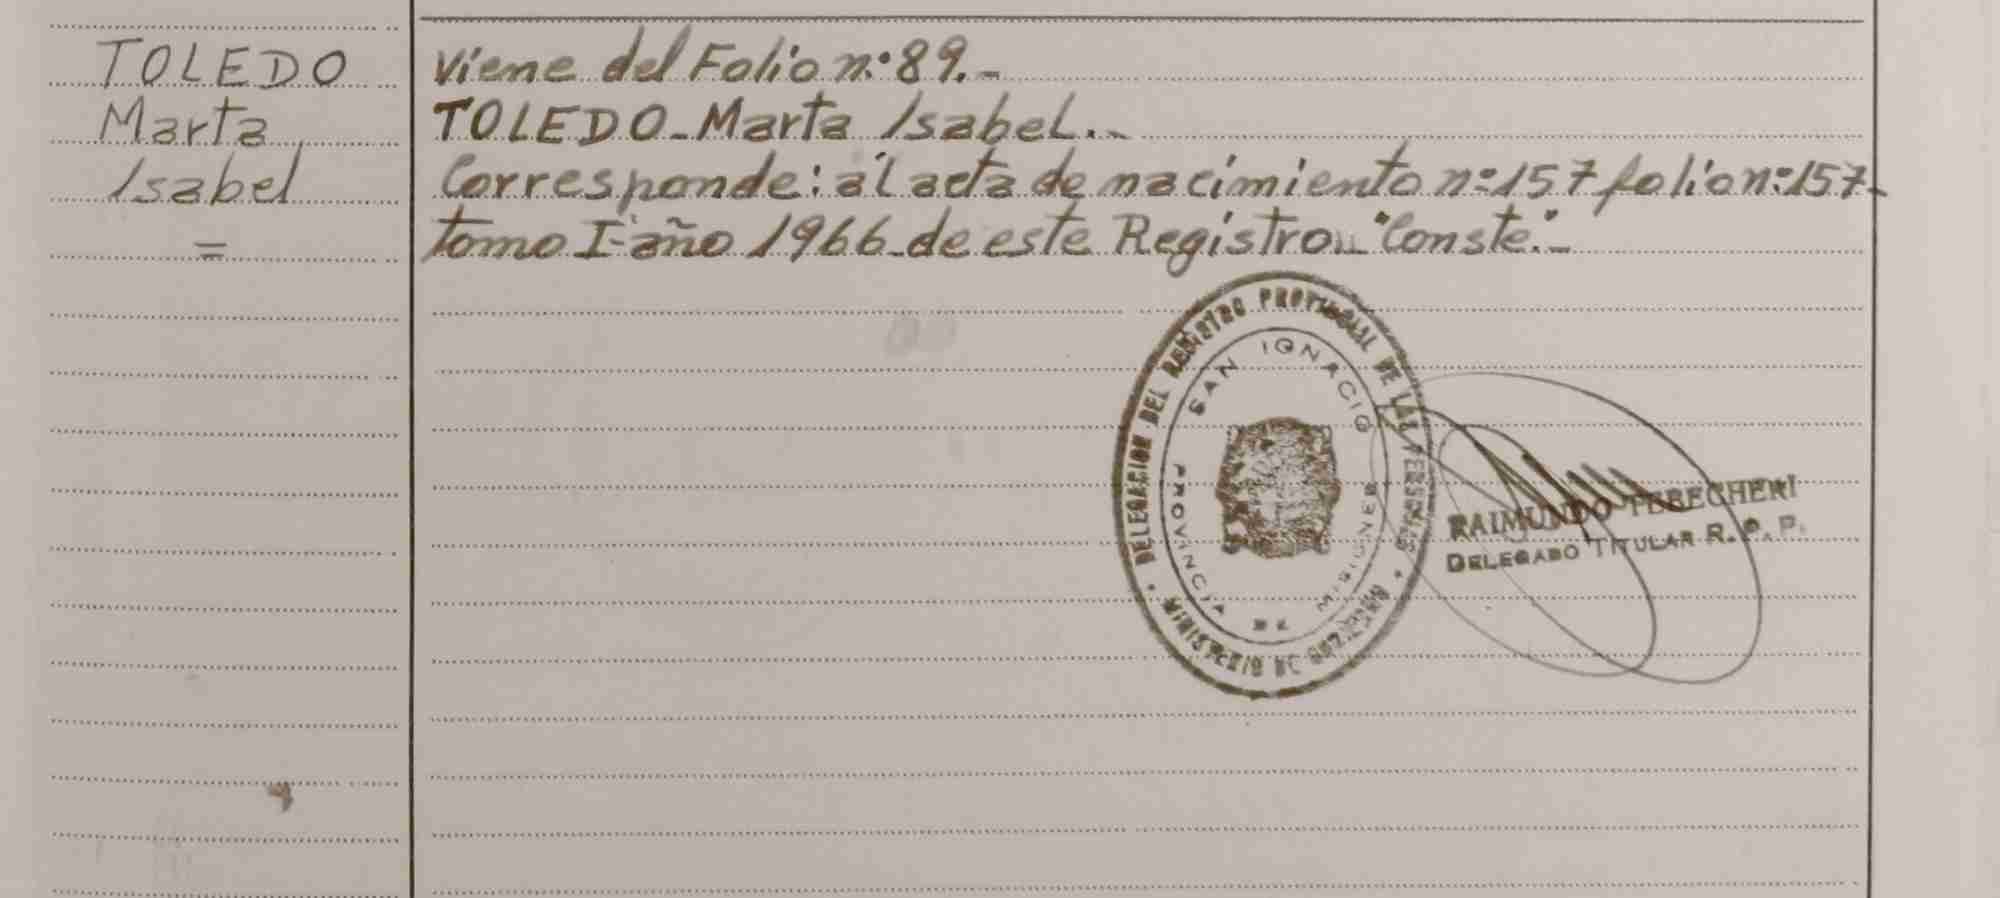 TOLEDO
Marta
Isabel
=
Viene del Folio n.º 89.-
TOLEDO-Marta Isabel.-
Corresponde: al acta de nacimiento nº 157 folio nº 157-
tomo I-año 1966-de este Registro.. "Conste".-
DELEGACION DEL REGISTRO PROVINCIAL DE LAS PERSONAS
SAN IGNACIO
PROVINCIA DE MISIONES
MINISTERIO DE GOBIERNO
RAIMUNDO
DELEGADO TITULAR R. P. P.